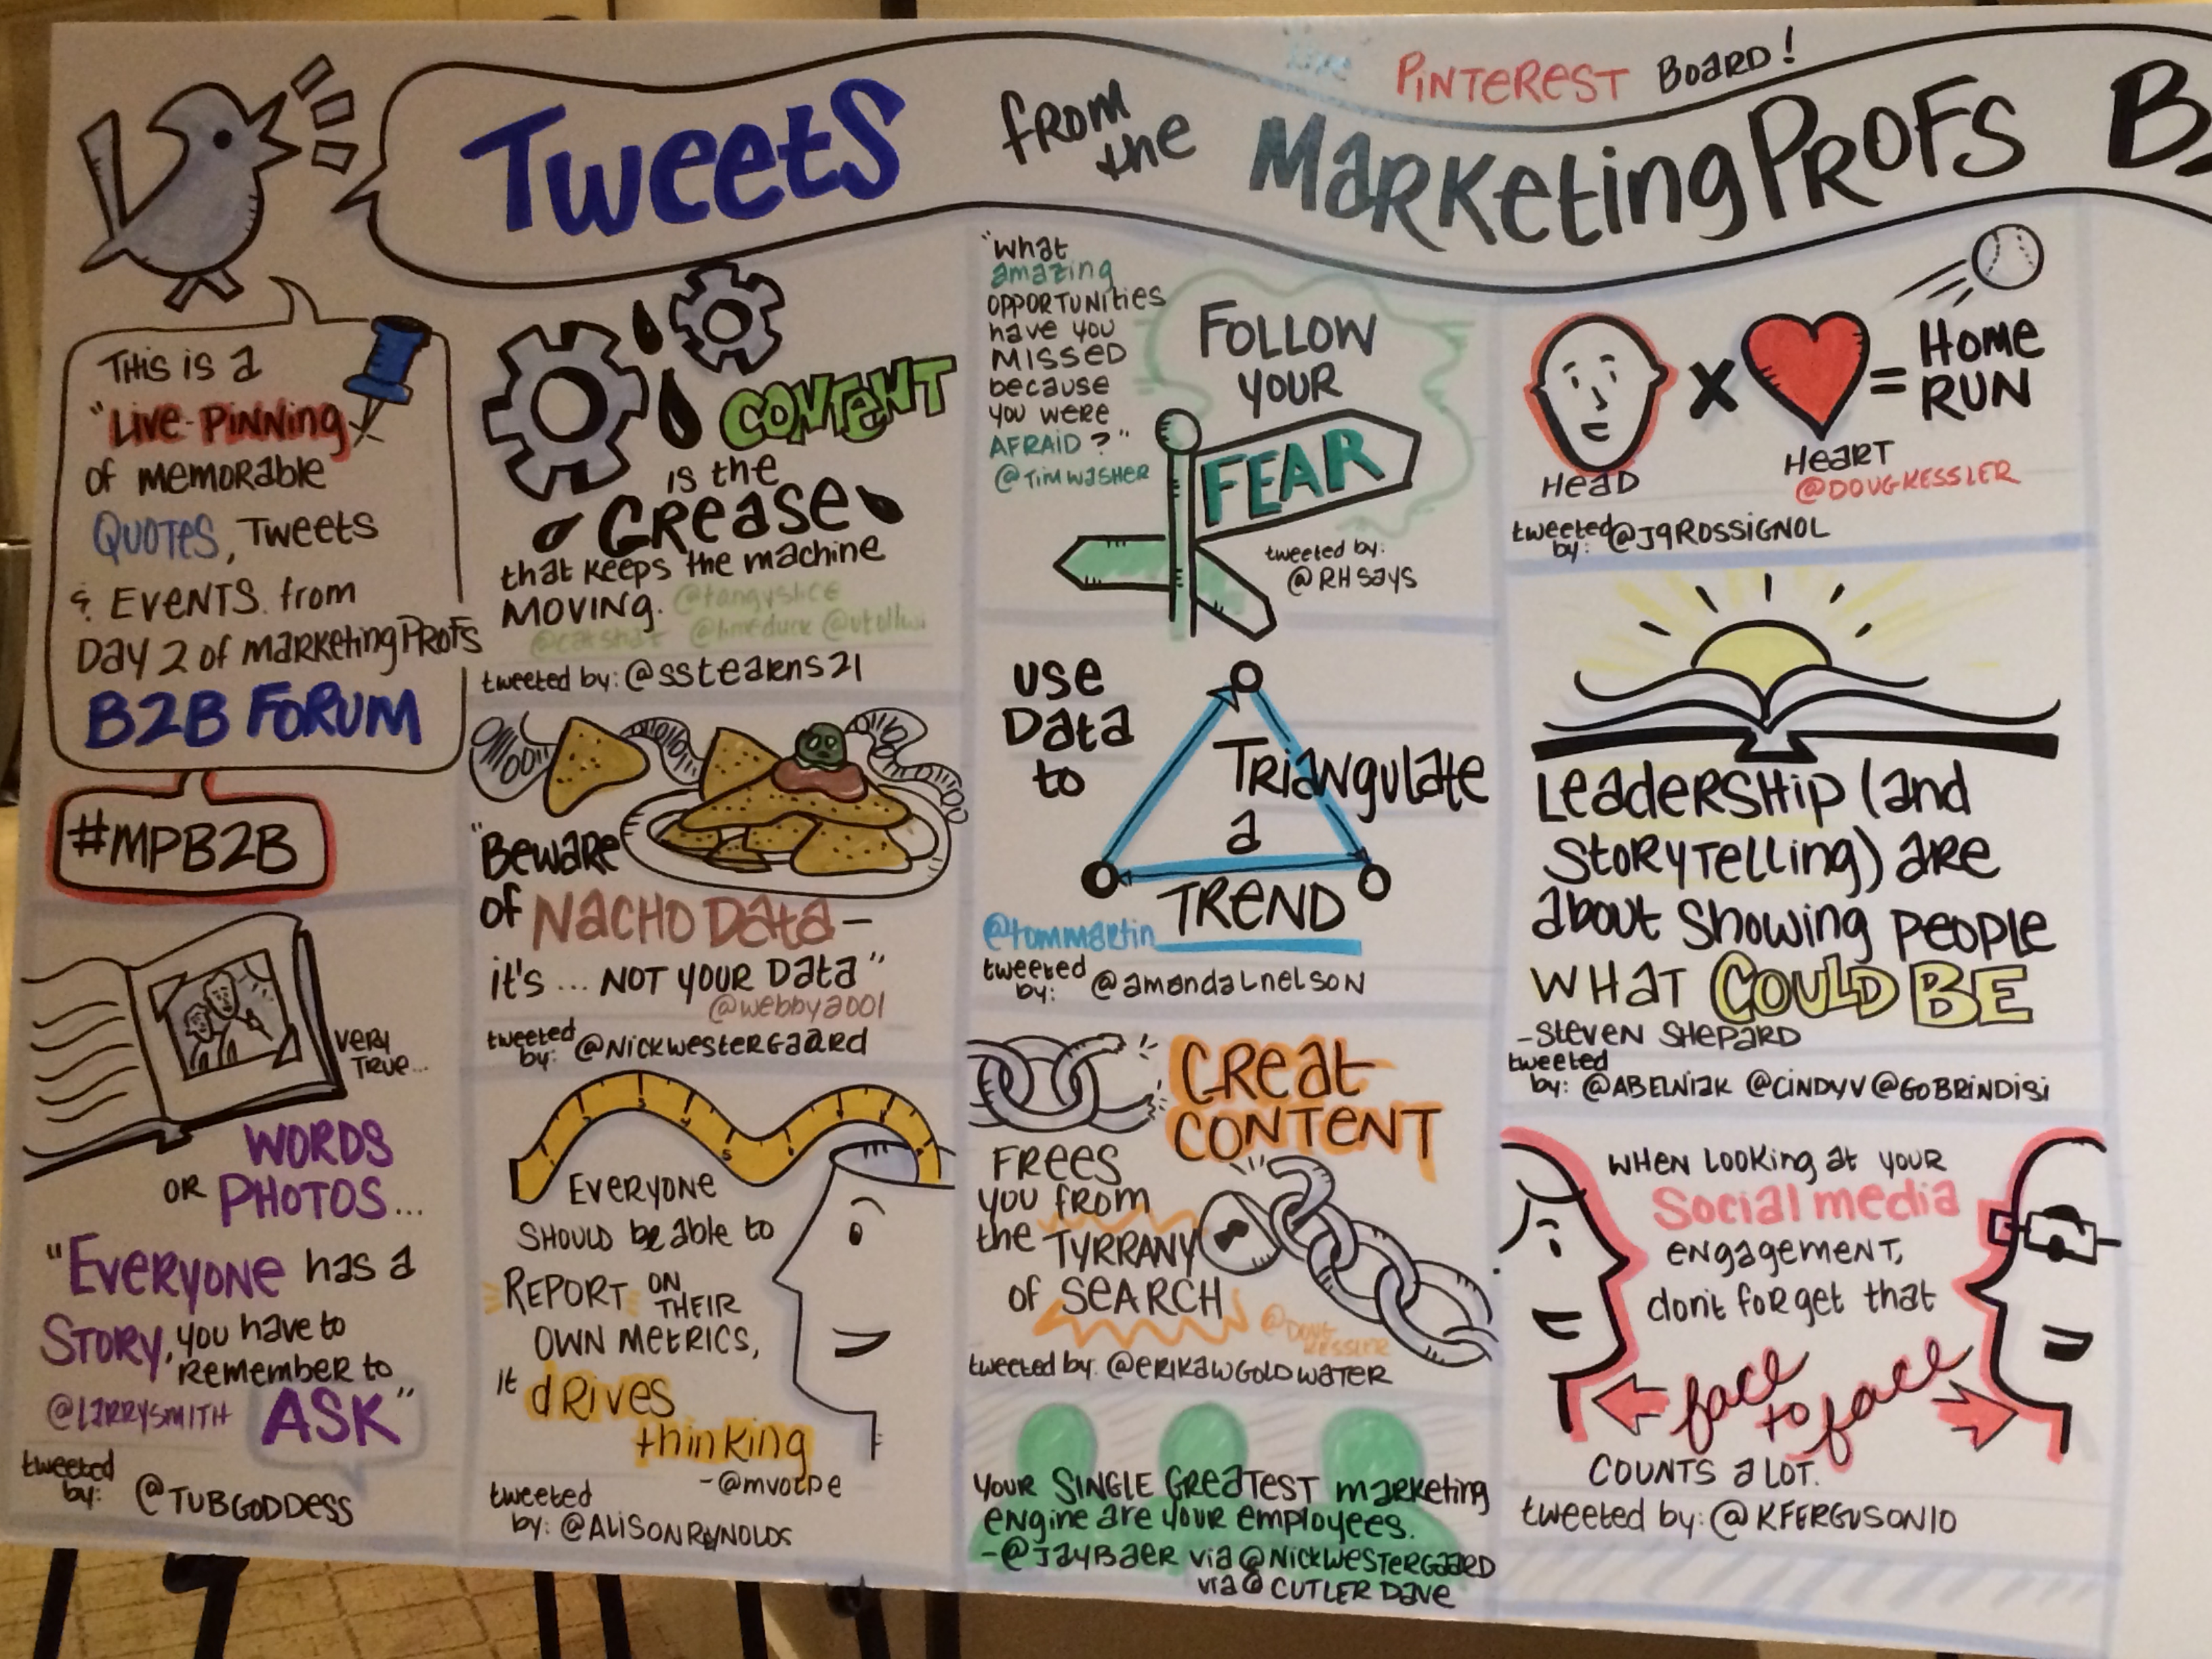 PINTEREST BOARD!
Tweets from the MarketingProfs
THIS IS a
"Live-Pinning
of memorable
QUOTES, Tweets
& EVENTS from
Day 2 of MarketingProfs
B2B FORUM
#MPB2B
VERY
TRUE...
WORDS
OR PHOTOS...
"Everyone has a
STORY, you have to
remember to
@LARRYSMITH ASK"
tweeted
by: @TUBGODDESS
CONTENT
is the
GREASE
that keeps the machine
MOVING. @tangyslice
tweeted by: @sstearns21
"Beware
of NACHO Data-
it's... NOT YOUR Data"
@webby2001
tweeted
by: @NICKWESTERGAARD
EVERYONE
SHOULD be able to
REPORT ON
THEIR
OWN METRICS,
it drives
thinking
-@mvolpe
tweeted
by: @ALISONREYNOLDS
"What
amazing
OPPORTUNities
have you
MISSED
because
you were
AFRAID?"
@TIMWASHER
FOLLOW
YOUR
FEAR
tweeted by:
@RHsays
use
Data
to
TRIANGulate
a
TREND
@tommartin
tweeted
by: @amandaLnelson
GREAT
CONTENT
FREES
you from
the TYRRANY
of SEARCH
@DOUG
KESSLER
tweeted by. @ERIKAWGOLDWATER
YOUR SINGLE GREATEST marketing
engine are your employees.
-@JAYBAER via @NICKWESTERGAARD
via @CUTLER Dave
HEAD X HEART = HOME
RUN
@DOUGKESSLER
tweeted
by: @J9ROSSIGNOL
Leadership (and
STORYTELLing) are
about showing people
WHAT COULD BE
-STEVEN SHEPARD
tweeted
by: @ABELNIAK @CINDYV @GOBRINDISI
WHEN LOOKING at YOUR
Social media
engagement,
don't forget that
face to face
COUNTS a LOT.
tweeted by: @KFERGUSON10